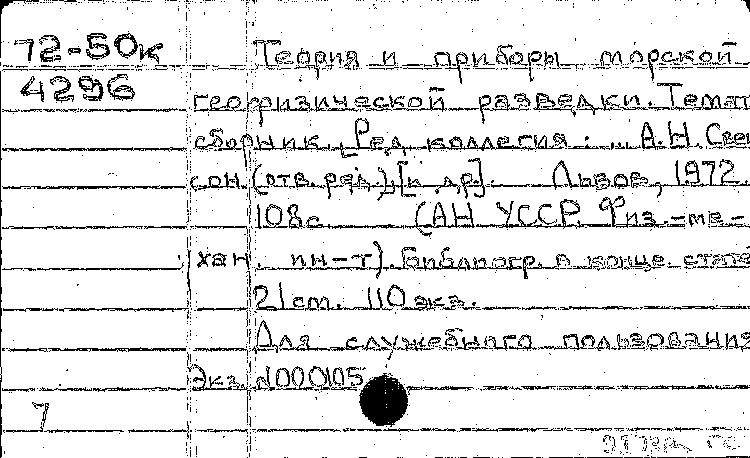 72-50к
4296
Теория и приборы морской
геофизической разведки. Темат
сборник. [Ред. коллегия: ... А.Н. Свен
сон (отв. ред.), [и др]. Львов, 1972.
108с. (АН УССР. Физ.-ме-
хан. ин-т). Библиогр. в конце. стате
21см. 110 экз.
Для служебного пользования
Экз. N000105
7